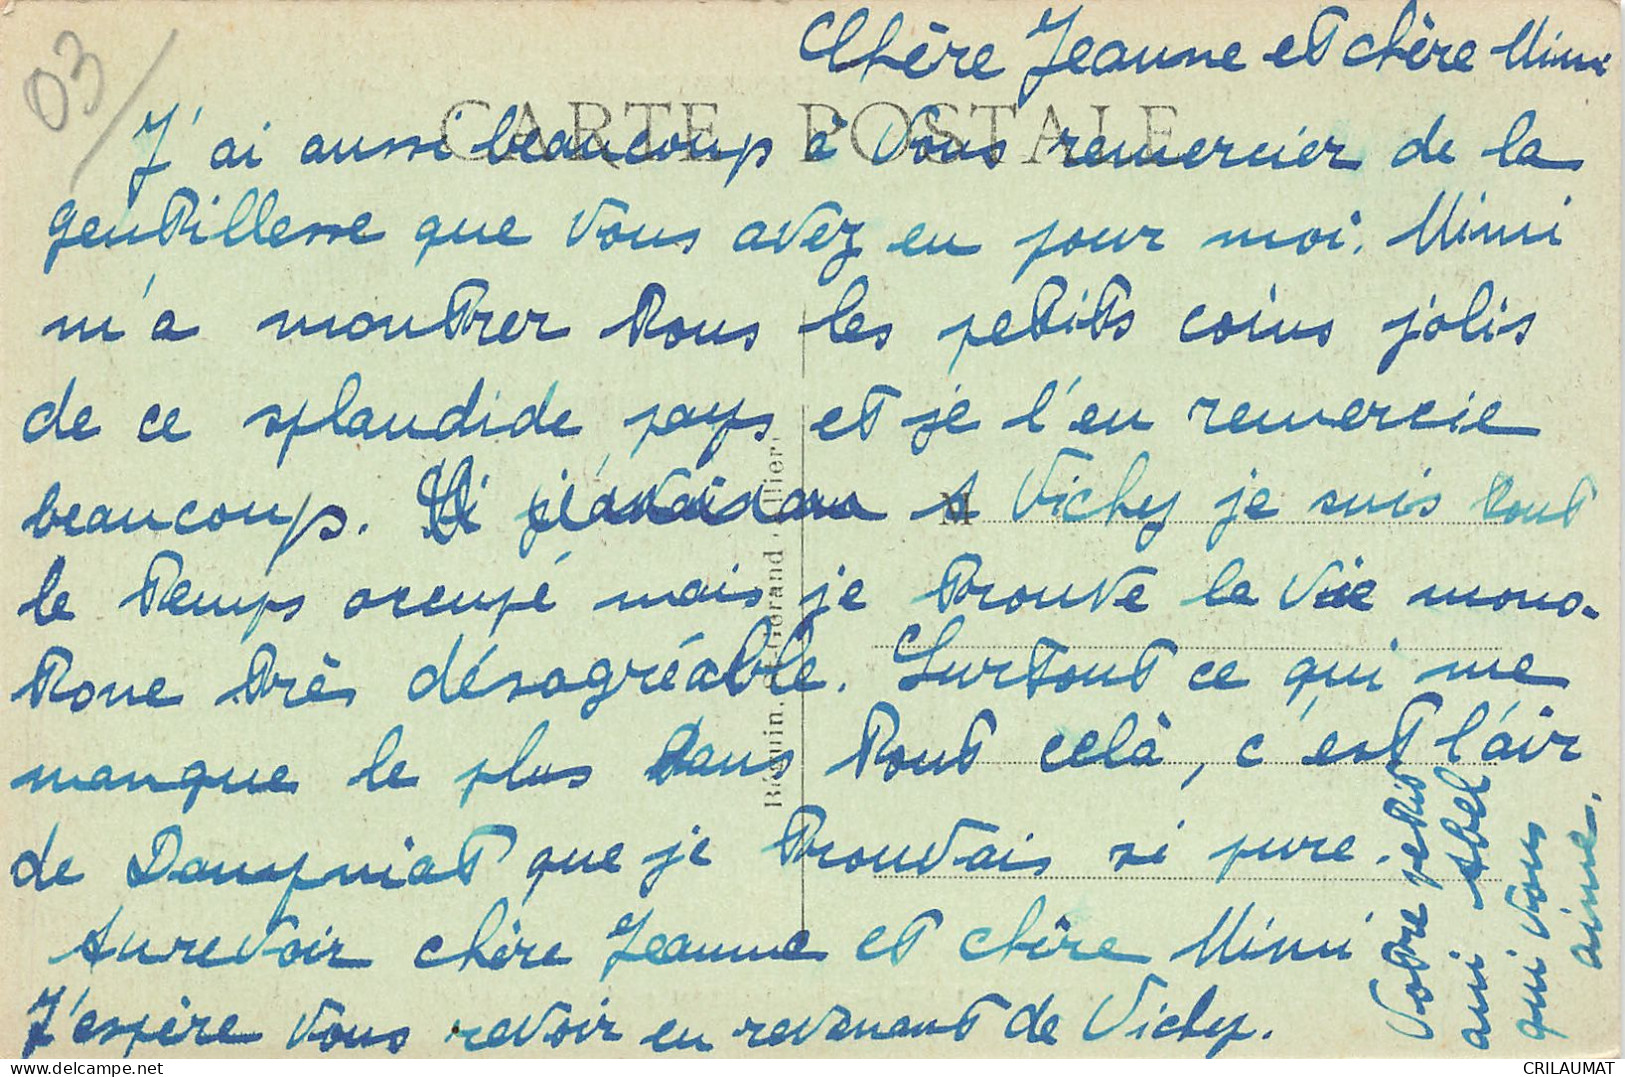 03
Chère Jeanne et chère Mimi
CARTE POSTALE
J'ai aussi beaucoup à vous remercier de la
gentillesse que vous avez eu pour moi. Mimi
m'a montrer tous les petits coins jolis
de ce splandide pays et je l'en remercie
beaucoup. A Vichy je suis tout
le temps occupé mais je trouve la vie mono-
tone très désagréable. Surtout ce qui me
manque le plus dans tout celà, c'est l'air
de Dampniat que je trouvais si pure.
Aurevoir chère Jeanne et chère Mimi
J'espère vous revoir en revenant de Vichy.
Votre petit
ami Abel
qui vous
aime.
M
Béguin, St-Gérand - Allier.
CRILAUMAT